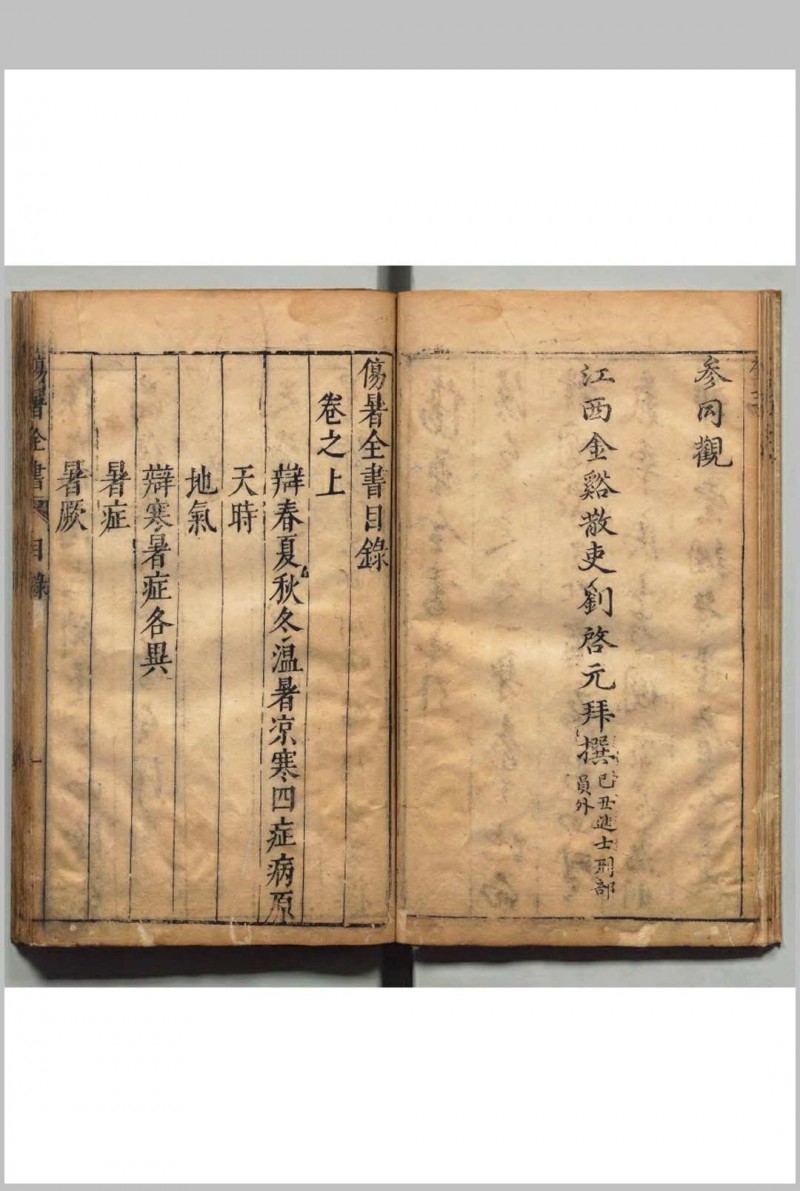 參同觀
江西金谿散吏劉啓元拜撰
己丑進士刑部
員外
傷暑全書目錄
卷之上
辯春夏秋冬溫暑凉寒四症病原
天時
地氣
辯寒暑症各異
暑症
暑厥
傷暑全書 目錄 一